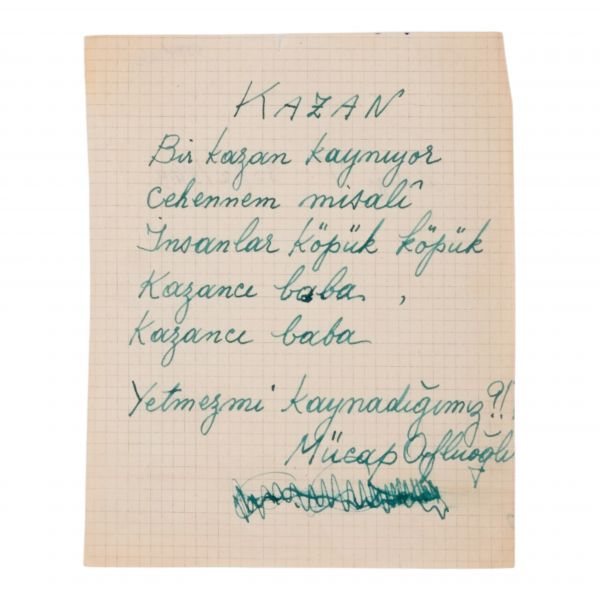 KAZAN
Bir kazan kaynıyor
cehennem misalî
İnsanlar köpük köpük
Kazancı baba,
Kazancı baba
Yetmezmi kaynadığımız?!!
Mücap Ofluoğlu